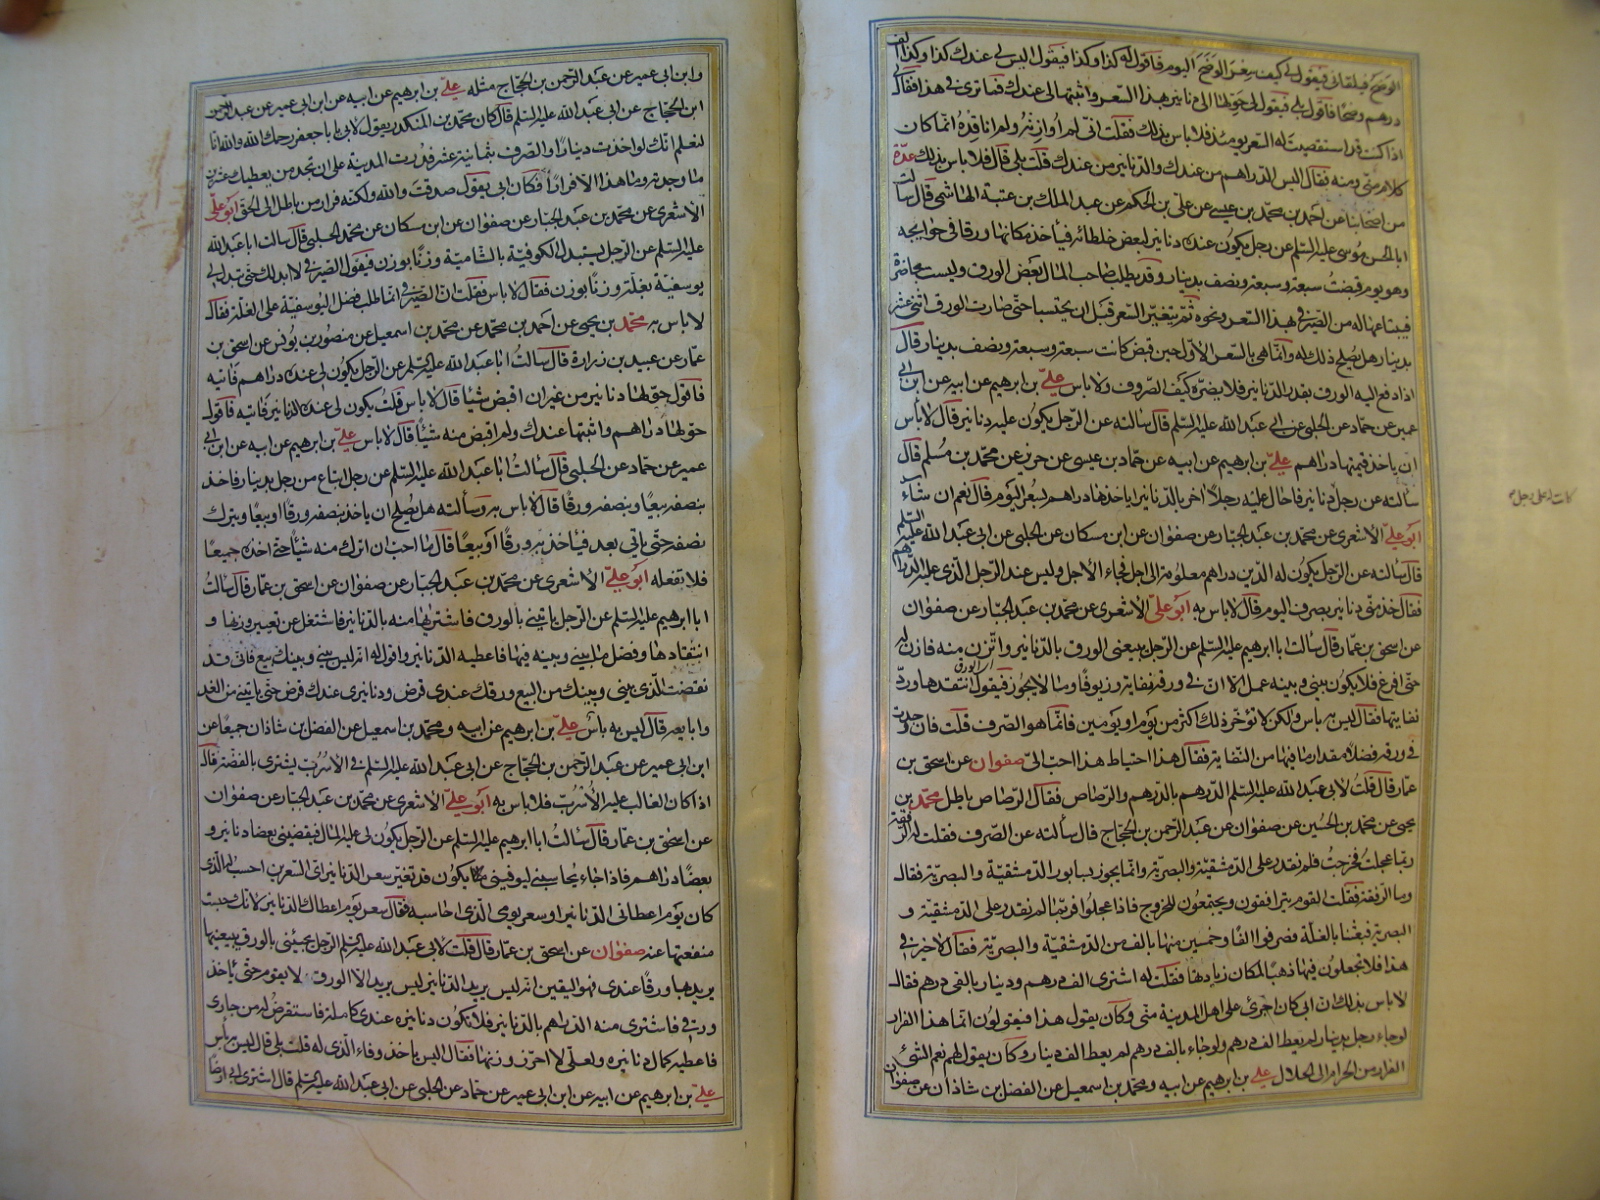 الوضح فيلقاني فيقول لي كيف سعر الوضح اليوم فاقول له كذا وكذا فيقول اليس لي عندك كذا وكذا الف
درهم وضحا فاقول بلى فيقول لي حولها الى دنانير بهذا السعر واثبتها لي عندك فما ترى في هذا فقال لي
اذا كنت قد استقصيت له السعر يومئذ فلا باس بذلك فقلت اني لم اوازنه ولم اناقده انما كان
كلام مني ومنه فقال اليس الدراهم من عندك والدنانير من عندك قلت بلى قال فلا باس بذلك عدة
من اصحابنا عن احمد بن محمد بن عيسى عن علي بن الحكم عن عبد الملك بن عتبة الهاشمي قال سالت
ابا الحسن موسى عليه السلم عن رجل يكون عنده دنانير لبعض خلطائه فياخذ مكانها ورقا في حوايجه
وهو يوم قبضت سبعة وسبعة ونصف بدينار وقد يطلب صاحب المال بعض الورق وليست بحاضرة
فيبتاعها له من الصيرفي بهذا السعر ونحوه ثم يتغير السعر قبل ان يحتسبا حتى صارت الورق اثنى عشر
بدينار هل يصلح ذلك له وانما هي بالسعر الاول حين قبض كانت سبعة وسبعة ونصف بدينار قال
اذا دفع اليه الورق بقدر الدنانير فلا يضره كيف الصروف ولا باس علي بن ابرهيم عن ابيه عن ابن ابي
عمير عن حماد عن الحلبي عن ابي عبد الله عليه السلم قال سالته عن الرجل يكون عليه دنانير قال لا باس
ان ياخذ قيمتها دراهم علي بن ابرهيم عن ابيه عن حماد بن عيسى عن حريز عن محمد بن مسلم قال
سالته عن رجل دنانير فاحال عليه رجلا اخر بالدنانير اياخذها دراهم بسعر اليوم قال نعم ان شاء
كانت له على رجل
ابو علي الاشعري عن محمد بن عبد الجبار عن صفوان عن ابن مسكان عن الحلبي عن ابي عبد الله عليه السلم
قال سالته عن الرجل يكون له الدين دراهم معلومة الى اجل فجاء الاجل وليس عند الرجل الذي عليه الدراهم
فقال خذ مني دنانير بصرف اليوم قال لا باس به ابو علي الاشعري عن محمد بن عبد الجبار عن صفوان
عن اسحق بن عمار قال سالت ابا ابرهيم عليه السلم عن الرجل يبيعني الورق بالدنانير واتزن منه فازن له
حتى افرغ فلا يكون بيني وبينه عمل الا ان في ورقه نفاية وزيوفا وما لا يجوز فيقول انتقدها ورد
نفايتها فقال ليس به باس ولكن لا تؤخر ذلك اكثر من يوم او يومين فانما هو الصرف قلت فان وجدت
في ورقه فضلا مقدار ما فيها من النفاية فقال هذا احتياط هذا احب الي صفوان عن اسحق بن
عمار قال قلت لابي عبد الله عليه السلم الدرهم بالدرهم والرصاص فقال الرصاص باطل محمد بن
يحيى عن محمد بن الحسين عن صفوان عن عبد الرحمن بن الحجاج قال سالته عن الصرف فقلت له الرفقة
ربما عجلت فخرجت فلم نقدر على الدمشقية والبصرية وانما يجوز بسابور الدمشقية والبصرية فقال
وما الرفقة فقلت القوم يترافقون ويجتمعون للخروج فاذا عجلوا فربما لم نقدر على الدمشقية و
البصرية فبعثنا بالغلة فصرفوا الفا وخمسين منها بالف من الدمشقية والبصرية فقال لا خير في
هذا فلا تجعلون فيها ذهبا لمكان زيادتها فقلت له اشتري الف درهم ودينار بالفي درهم فقال
لا باس بذلك ان ابي كان اجرئ على اهل المدينة مني وكان يقول هذا فيقولون انما هذا الفرار
لو جاء رجل بدينار لم يعط الف درهم ولو جاء بالف درهم لم يعط الف دينار وكان يقول لهم نعم الشئ
الفرار من الحرام الى الحلال علي بن ابرهيم عن ابيه ومحمد بن اسمعيل عن الفضل بن شاذان عن صفوان
وابن ابي عمير عن عبد الرحمن بن الحجاج مثله علي بن ابرهيم عن ابيه عن ابن ابي عمير عن عبد الرحمن
ابن الحجاج عن ابي عبد الله عليه السلم قال كان محمد بن المنكدر يقول لابي يا با جعفر رحمك الله والله انا
لنعلم انك لو اخذت دينارا والصرف بثمانية عشر فدرت المدينة على ان تجد من يعطيك عشرين
ما وجدته وما هذا الا فرارا فكان ابي يقول صدقت والله ولكنه فرار من باطل الى الحق ابو علي
الاشعري عن محمد بن عبد الجبار عن صفوان عن ابن مسكان عن محمد الحلبي قال سالت ابا عبد الله
عليه السلم عن الرجل يستبدل الكوفية بالشامية وزنا بوزن فيقول الصيرفي لا ابدلك حتى تبدل لي
يوسفية بغلة وزنا بوزن فقال لا باس فقلت ان الصيرفي انما طلب فضل اليوسفية على الغلة فقال
لا باس به محمد بن يحيى عن احمد بن محمد عن محمد بن اسمعيل عن منصور بن يونس عن اسحق بن
عمار عن عبيد بن زرارة قال سالت ابا عبد الله عليه السلم عن الرجل يكون لي عنده دراهم فاتيه
فاقول حولها دنانير من غير ان اقبض شيئا قال لا باس قلت يكون لي عنده الدنانير فاتيه فاقول
حول لها دراهم واثبتها عندك ولم اقبض منه شيئا قال لا باس علي بن ابرهيم عن ابيه عن ابن ابي
عمير عن حماد عن الحلبي قال سالت ابا عبد الله عليه السلم عن رجل ابتاع من رجل بدينار فاخذ
بنصفه بيعا وبنصفه ورقا قال لا باس به وسالته هل يصلح ان ياخذ بنصفه ورقا او بيعا ويترك
نصفه حتى ياتي بعد فياخذ به ورقا او بيعا قال ما احب ان اترك منه شيئا حتى اخذه جميعا
فلا تفعله ابو علي الاشعري عن محمد بن عبد الجبار عن صفوان عن اسحق بن عمار قال سالت
ابا ابرهيم عليه السلم عن الرجل ياتيني بالورق فاشتريها منه بالدنانير فاشتغل عن تعيير وزنها و
انتقادها وفضل ما بيني وبينه فيها فاعطيه الدنانير واقول له انه ليس بيني وبينك بيع فاني قد
نقضت الذي بيني وبينك من البيع ورقك عندي قرض ودنانيري عندك قرض حتى ياتيني من الغد
وابايعه قال ليس به باس علي بن ابرهيم عن ابيه ومحمد بن اسمعيل عن الفضل بن شاذان جميعا عن
ابن ابي عمير عن عبد الرحمن بن الحجاج عن ابي عبد الله عليه السلم في الاسرب يشترى بالفضة قال
اذا كان الغالب عليه الاسرب فلا باس به ابو علي الاشعري عن محمد بن عبد الجبار عن صفوان
عن اسحق بن عمار قال سالت ابا ابرهيم عليه السلم عن الرجل يكون لي عليه المال فيقضيني بعضا دنانير و
بعضا دراهم فاذا جاء يحاسبني ليوفيني يكون قد تغير سعر الدنانير اي السعرين احسب له الذي
كان يوم اعطاني الدنانير او سعر يومي الذي احاسبه فقال سعر يوم اعطاك الدنانير لانك حبست
منفعتها عنه صفوان عن اسحق بن عمار قال قلت لابي عبد الله عليه السلم الرجل يجيئني بالورق يبيعنيها
يريد بها ورقا عندي فهو اليقين انه ليس يريد الدنانير ليس يريد الا الورق لا يقوم حتى ياخذ
ورقي فاشتري منه الدراهم بالدنانير فلا تكون دنانيره عندي كاملة فاستقرض له من جاري
فاعطيه كمال دنانيره ولعلي لا احرز وزنها فقال اليس ياخذ وفاء الذي له قلت بلى قال ليس به باس
علي بن ابرهيم عن ابيه عن ابن ابي عمير عن حماد عن الحلبي عن ابي عبد الله عليه السلم قال اشترى ابي ارضا